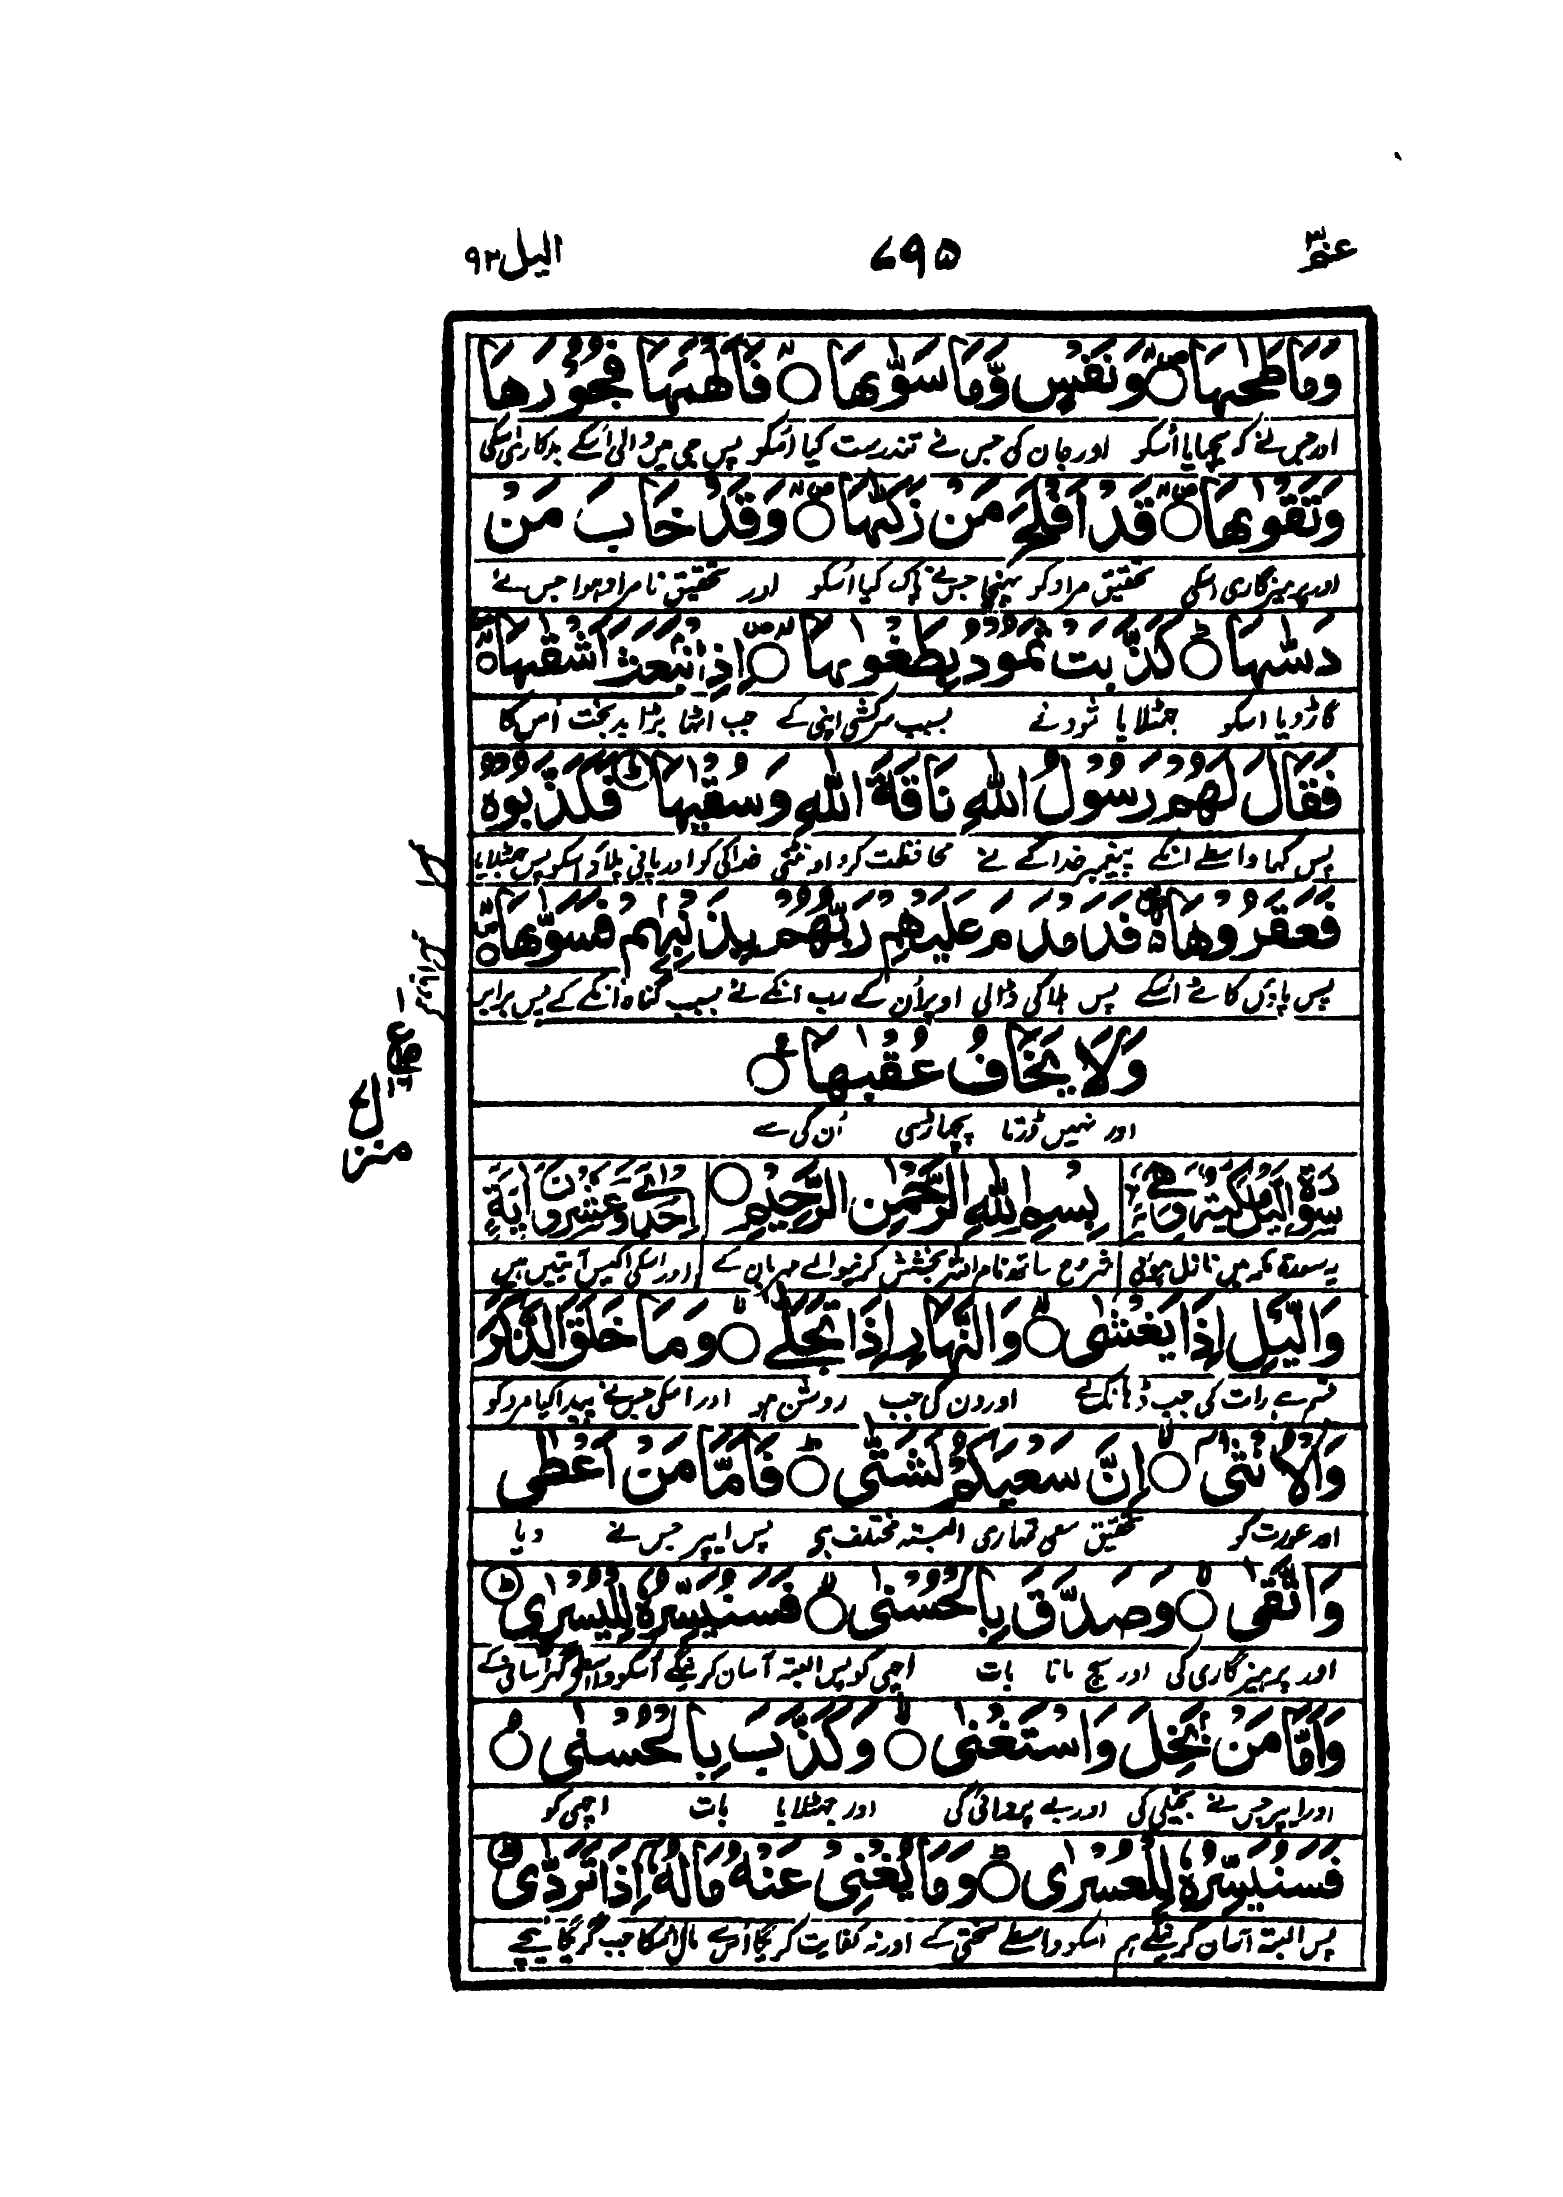 عم ۳۰
۷۹۵
الیل ۹۲
وَمَا طَحٰىهَا ○ وَنَفْسٍ وَّمَا سَوّٰىهَا ○ فَاَلْهَمَهَا فُجُوْرَهَا
اور جس نے کہ بچھایا اُسکو اور جان کی جس نے تندرست کیا اُسکو پس جی میں ڈالی اُسکے بدکاری اُسکی
وَتَقْوٰىهَا ○ قَدْ اَفْلَحَ مَنْ زَكّٰىهَا ○ وَقَدْ خَابَ مَنْ
اور پرہیزگاری اسکی تحقیق مراد کو پہنچا جسنے پاک کیا اُسکو اور تحقیق نامراد ہوا جس نے
دَسّٰىهَا ○ كَذَّبَتْ ثَمُوْدُ بِطَغْوٰىهَا ○ اِذِ انْۢبَعَثَ اَشْقٰىهَا ○
گاڑ دیا اسکو جھٹلایا ثمود نے بسبب سرکشی اپنی کے جب اٹھا بڑا بدبخت اُس کا
فَقَالَ لَهُمْ رَسُوْلُ اللّٰهِ نَاقَةَ اللّٰهِ وَسُقْيٰهَا ○ فَكَذَّبُوْهُ
پس کہا واسطے انکے پیغمبر خدا کے نے محافظت کرو اونٹنی خدا کی کو اور پانی پلاؤ اسکو پس جھٹلایا
فَعَقَرُوْهَا ○ فَدَمْدَمَ عَلَيْهِمْ رَبُّهُمْ بِذَنْۢبِهِمْ فَسَوّٰىهَا ○
پس پاؤں کاٹے اُسکے پس ہلاکی ڈالی اوپر اُن کے رب انکے نے بسبب گناہ اُنکے کے پس برابر
وَلَا يَخَافُ عُقْبٰهَا ○
اور نہیں ڈرتا پچھاڑی اُن کی سے
سُوْرَةُ الَّيْلِ مَكِّيَّةٌ وَّهِيَ بِسْمِ اللّٰهِ الرَّحْمٰنِ الرَّحِيْمِ ○ اِحْدٰى وَعِشْرُوْنَ اٰيَةً
یہ سورۃ مکہ میں نازل ہوئی شروع ساتھ نام اللہ بخشش کرنیوالے مہربان کے اور اسکی اکیس آیتیں ہیں
وَالَّيْلِ اِذَا يَغْشٰى ○ وَالنَّهَارِ اِذَا تَجَلّٰى ○ وَمَا خَلَقَ الذَّكَرَ
قسم ہے رات کی جب ڈھانک لے اور دن کی جب روشن ہو اور اسکی جسنے پیدا کیا مرد کو
وَالْاُنْثٰى ○ اِنَّ سَعْيَكُمْ لَشَتّٰى ○ فَاَمَّا مَنْ اَعْطٰى
اور عورت کو تحقیق سعی تمہاری البتہ مختلف ہے پس ایپر جس نے دیا
وَاتَّقٰى ○ وَصَدَّقَ بِالْحُسْنٰى ○ فَسَنُيَسِّرُهٗ لِلْيُسْرٰى ○
اور پرہیزگاری کی اور سچ مانا بات اچھی کو پس البتہ آسان کرینگے اسکو واسطے گھر آسانی کے
وَاَمَّا مَنْۢ بَخِلَ وَاسْتَغْنٰى ○ وَكَذَّبَ بِالْحُسْنٰى ○
اور ایپر جس نے بخیلی کی اور بے پروائی کی اور جھٹلایا بات اچھی کو
فَسَنُيَسِّرُهٗ لِلْعُسْرٰى ○ وَمَا يُغْنِيْ عَنْهُ مَالُهٗٓ اِذَا تَرَدّٰى ○
پس البتہ آسان کرینگے ہم اسکو واسطے سختی کے اور نہ کفایت کریگا اُس سے مال اسکا جب گریگا نیچے
منزل